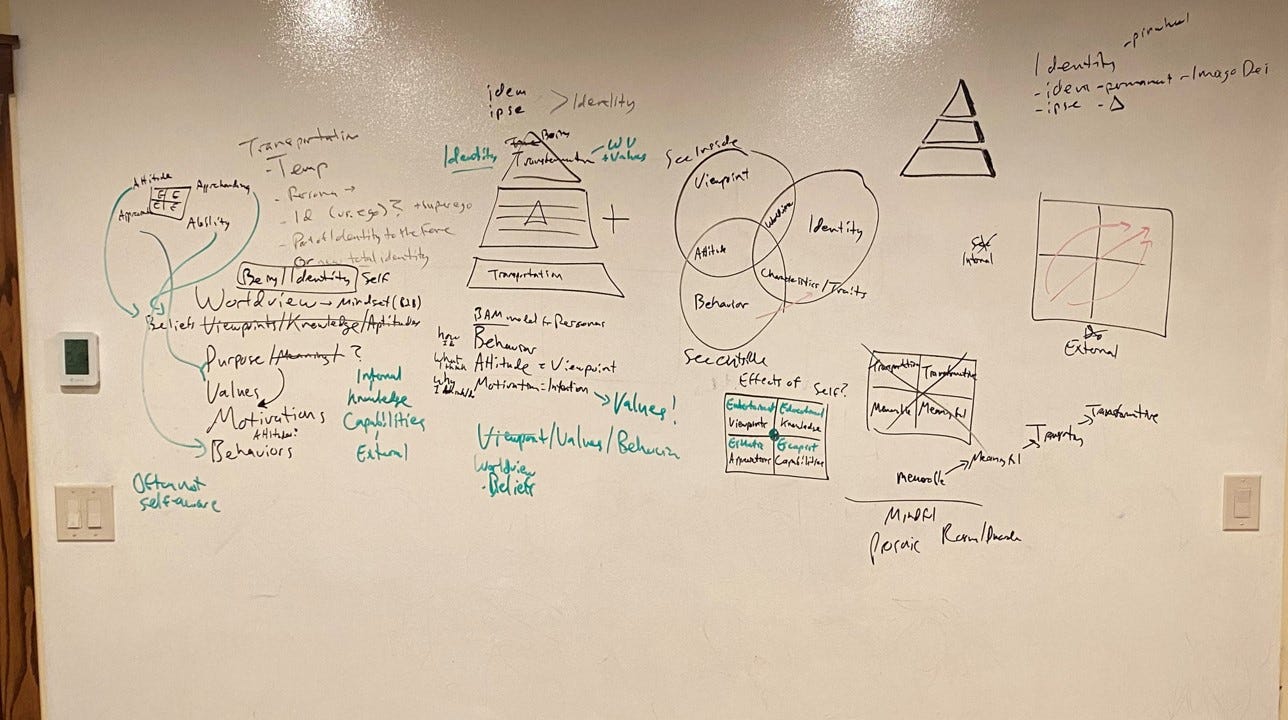 Transportation
- Temp
- Persona →
- Id (vs. ego)? + superego
- Part of Identity to the Fore
or new total identity
Attitude
Apprehending
E E
E E
Ability
Being/Identity Self
Worldview → Mindset (B2B)
Beliefs Viewpoints/Knowledge/Aptitudes
Purpose/Meaning/?
Values
Motivations
Attitudes?
Behaviors
Internal
Knowledge
Capabilities
External
Often not
self-aware
idem
ipse > Identity
Being
Identity
Transformation - WV + Values
Δ
+
Transportation
BAM model for Personas
Behavior
What I think Attitude = Viewpoint
Why Motivation = Intention → Values!
Viewpoint/Values/Behavior
Worldview
- Beliefs
See Inside
Viewpoint
Worldview
Identity
Attitude
Characteristics/Traits
Behavior
See outside
Effects of Self?
Entertainment Educational
Viewpoints Knowledge
Esthetic Escapist
Apprehensions Capabilities
Identity - pinwheel
- idem - permanent - Imago Dei
- ipse - Δ
Internal
External
Transportation Transformative
Memorable Meaningful
Memorable → Meaningful → Transporting → Transformative
Mindful
Prosaic